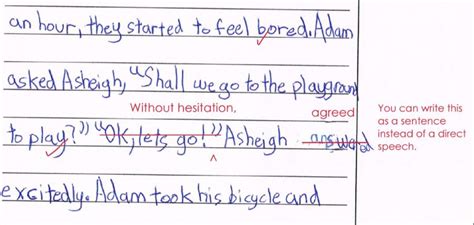 an hour, they started to feel bored. Adam
asked Asheigh, "Shall we go to the playground
Without hesitation,
agreed
to play?" "Ok, lets go!" Asheigh answered
excitedly. Adam took his bicycle and
You can write this
as a sentence
instead of a direct
speech.